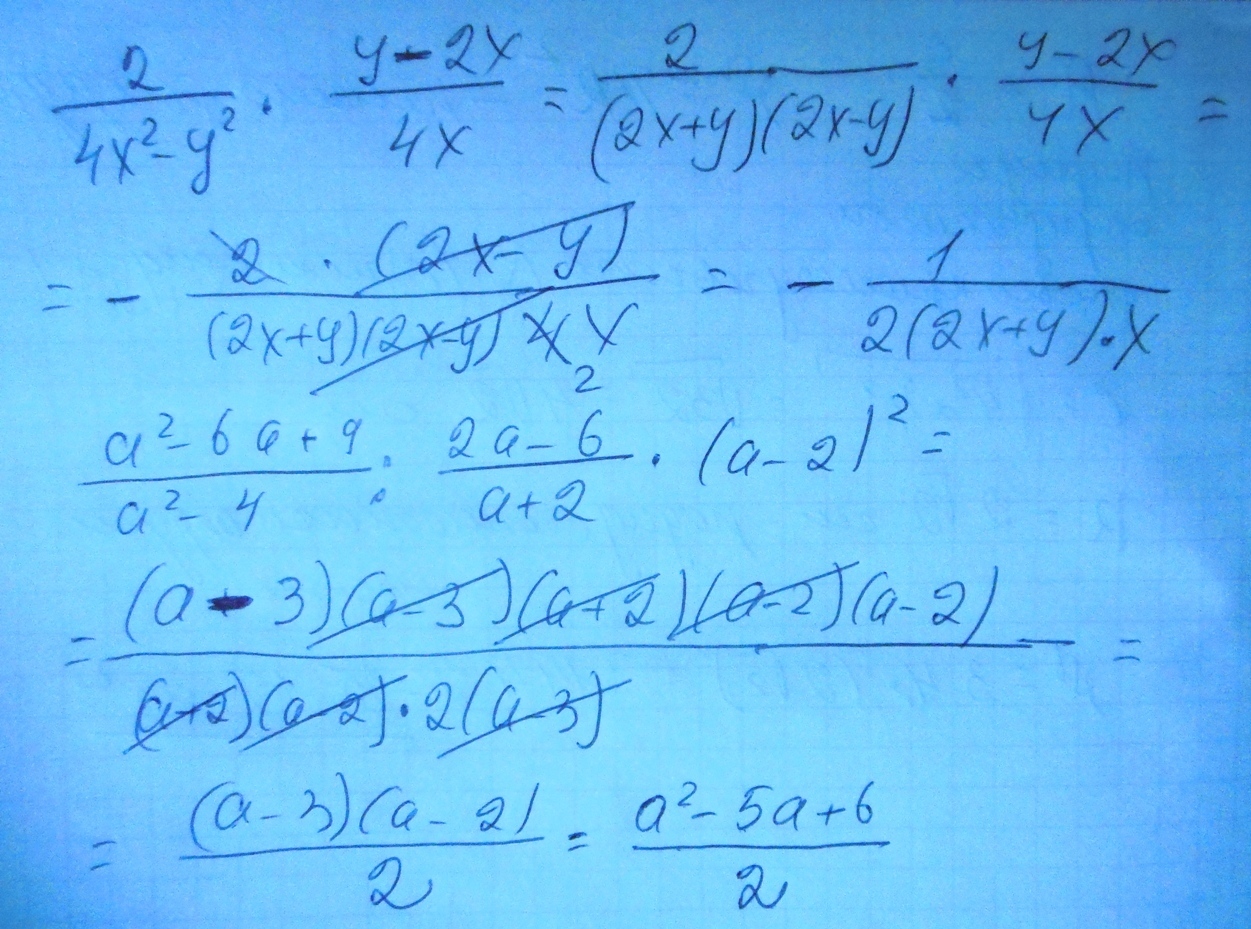 2/(4x²-y²) · (y-2x)/(4x) = 2/((2x+y)(2x-y)) · (y-2x)/(4x) =
= - (2 · (2x-y))/((2x+y)(2x-y) 4x) 2 = - 1/(2(2x+y)·x)
(a²-6a+9)/(a²-4) : (2a-6)/(a+2) · (a-2)² =
= ((a-3)(a-3)(a+2)(a-2)(a-2))/((a+2)(a-2)·2(a-3)) =
= ((a-3)(a-2))/2 = (a²-5a+6)/2